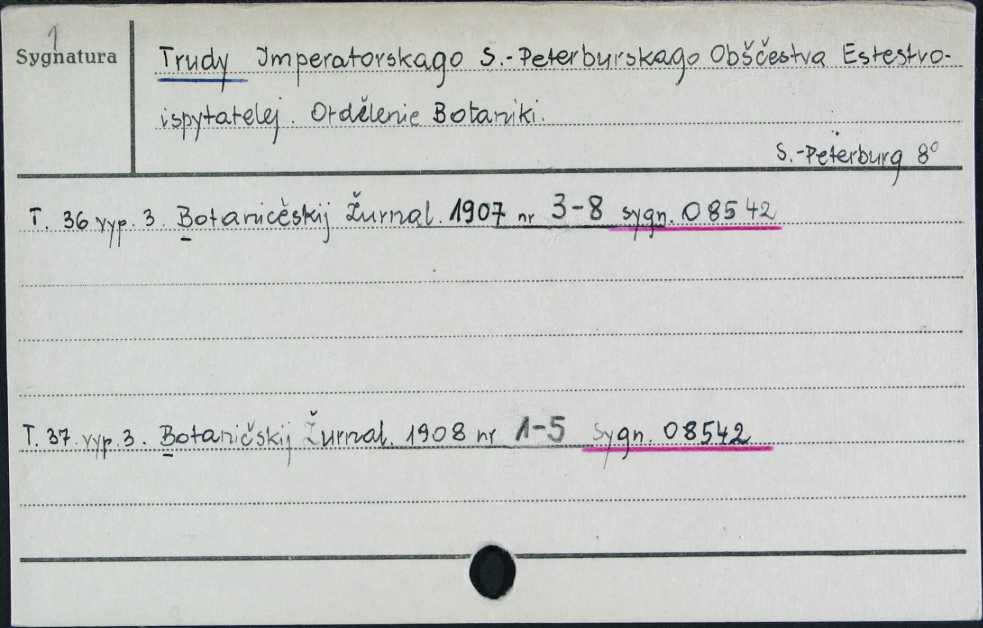 Sygnatura
Trudy Imperatorskago S.-Peterburskago Obščestva Estestvo-
ispytatelej. Otdělenie Botaniki.
S.-Peterburg 8°
T. 36 vyp. 3. Botanicěskij Žurnal. 1907 nr 3-8 sygn. 08542
T. 37. vyp. 3. Botaničskij Žurnal. 1908 nr 1-5 sygn. 08542